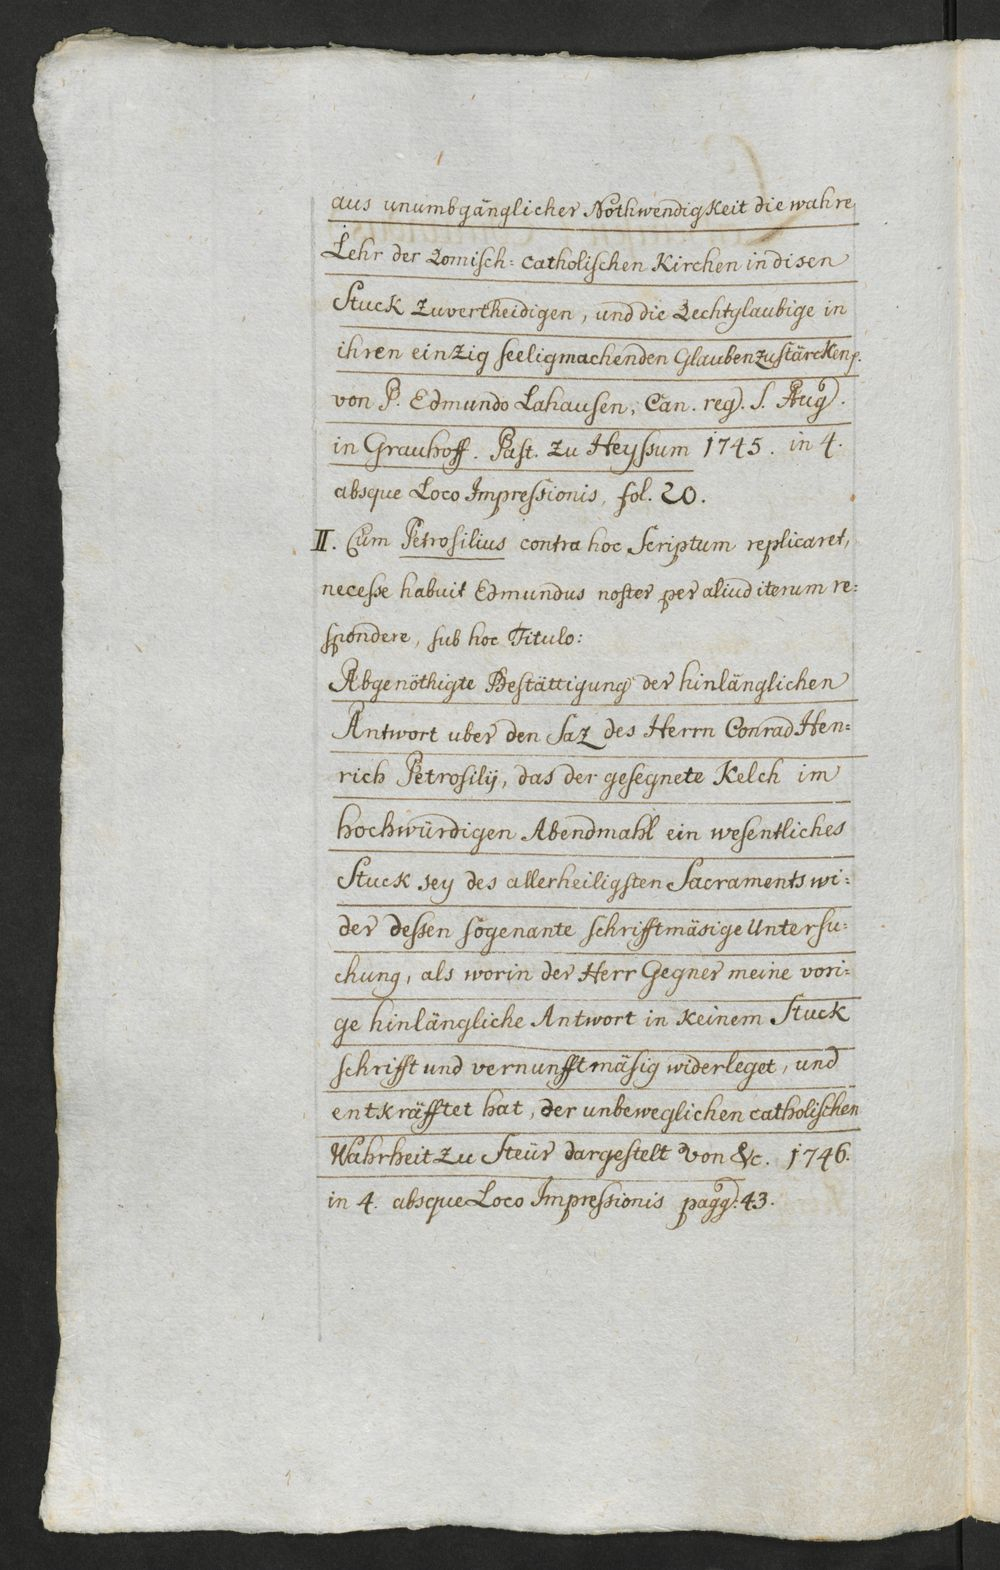 aus unumbgänglicher Nothwendigkeit die wahre
Lehr der Römisch: catholischen Kirchen in disen
Stuck zuvertheidigen, und die Rechtglaubige in
ihren einzig seeligmachenden Glauben zu stärcken p.
von P. Edmundo Lahausen, Can. reg. S. Aug.
in Grauhoff. Past. zu Heyssum 1745. in 4.
absque Loco Impressionis, fol. 20.
II. Cùm Petrosilius contra hoc Scriptum replicaret,
necesse habuit Edmundus noster per aliud iterum re:
spondere, sub hoc Titulo:
Abgenöthigte Bestättigung der hinlänglichen
Antwort uber den Saz des Herrn Conrad Hen:
rich Petrosilij, das der gesegnete Kelch im
hochwürdigen Abendmahl ein wesentliches
Stuck sey des allerheiligsten Sacraments wi:
der dessen sogenante schrifftmäsige Untersu:
chung, als worin der Herr Gegner meine vori:
ge hinlängliche Antwort in keinem Stuck
schrifft und vernunfftmäsig widerleget, und
entkräfftet hat, der unbeweglichen catholischen
Wahrheit zu Steür dargestelt von &c. 1746.
in 4. absque Loco Impressionis pagg. 43.